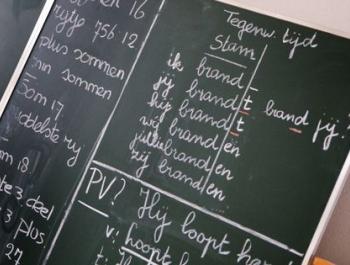 16
rijtje 756:12
plus sommen
min sommen
Som 17
middelste rij
m 18
3 deel
3 plus
27
Tegenw. tijd
Stam
ik brand -
jij brand t - brand jij ?
hij brand t
wij brand en
jullie brand en
zij brand en
PV? Hij loopt
v: loopt
t: